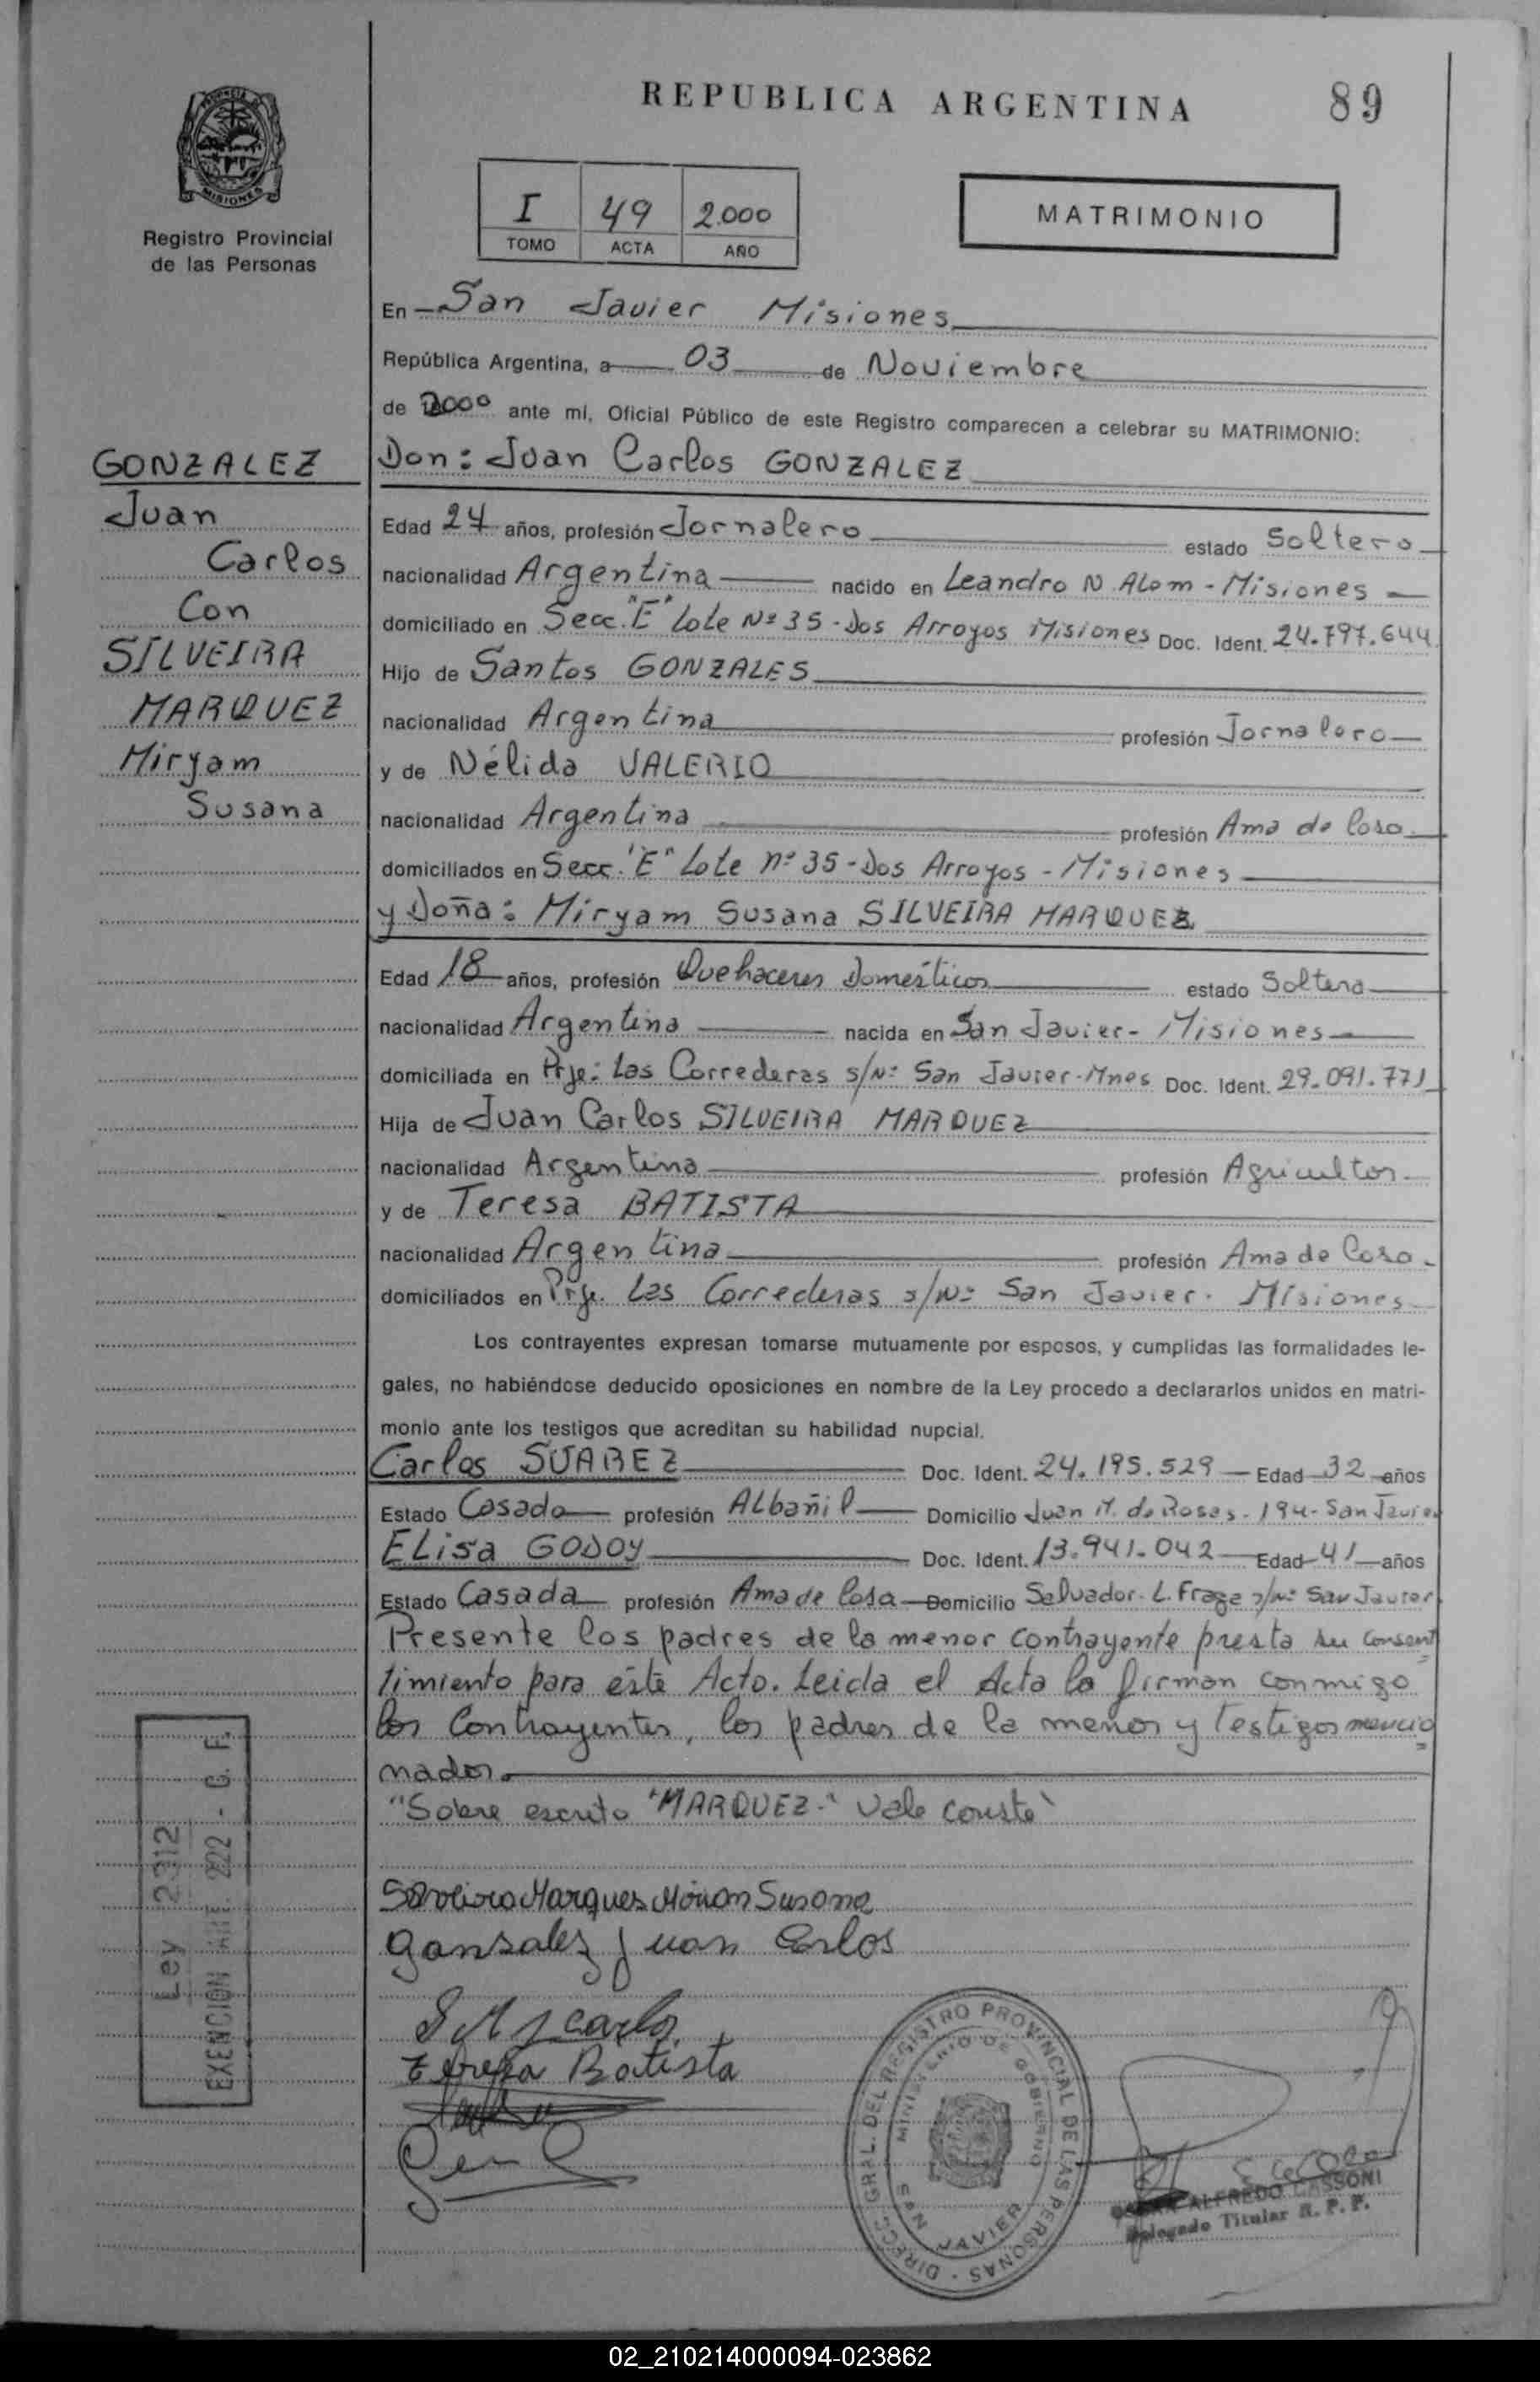 REPUBLICA ARGENTINA
89
PROVINCIA DE MISIONES
Registro Provincial
de las Personas
I 49 2.000
TOMO ACTA AÑO
MATRIMONIO
En San Javier Misiones
República Argentina, a 03 de Noviembre
de 2000 ante mí, Oficial Público de este Registro comparecen a celebrar su MATRIMONIO:
GONZALEZ
Juan
Carlos
Con
SILVEIRA
MARQUEZ
Miryam
Susana
Don: Juan Carlos GONZALEZ
Edad 24 años, profesión Jornalero estado Soltero
nacionalidad Argentina nacido en Leandro N. Alem - Misiones
domiciliado en Secc. "E" Lote Nº 35 - Dos Arroyos Misiones Doc. Ident. 24.797.644
Hijo de Santos GONZALES
nacionalidad Argentina profesión Jornalero
y de Nélida VALERIO
nacionalidad Argentina profesión Ama de Casa
domiciliados en Secc. "E" Lote nº 35 - Dos Arroyos - Misiones
y Doña: Miryam Susana SILVEIRA MARQUEZ
Edad 18 años, profesión Quehaceres Domésticos estado Soltera
nacionalidad Argentina nacida en San Javier - Misiones
domiciliada en Prje: Las Correderas s/Nº San Javier - Mnes Doc. Ident. 29.091.771
Hija de Juan Carlos SILVEIRA MARQUEZ
nacionalidad Argentina profesión Agricultor
y de Teresa BATISTA
nacionalidad Argentina profesión Ama de Casa
domiciliados en Prje. Las Correderas s/Nº San Javier. Misiones
Los contrayentes expresan tomarse mutuamente por esposos, y cumplidas las formalidades le-
gales, no habiéndose deducido oposiciones en nombre de la Ley procedo a declararlos unidos en matri-
monio ante los testigos que acreditan su habilidad nupcial.
Carlos SUAREZ Doc. Ident. 24.195.529 Edad 32 años
Estado Casado profesión Albañil Domicilio Juan M. de Rosas - 194 - San Javier
Elisa GODOY Doc. Ident. 13.941.042 Edad 41 años
Estado Casada profesión Ama de Casa Domicilio Salvador L. Fraga s/nº San Javier
Presente los padres de la menor contrayente presta su consen=
timiento para éste Acto. Leida el Acta la firman conmigo
los Contrayentes, los padres de la menor y testigos mencio=
nados.
"Sobre escrito "MARQUEZ" Vale conste"
Ley 2312
EXENCION ART. 222 - C. F.
Silveira Marques Miriam Susana
Gonzalez Juan Carlos
S M J Carlos
Teresa Batista
DIRECC. GRAL. DEL REGISTRO PROVINCIAL DE LAS PERSONAS
MINISTERIO DE GOBIERNO
SAN JAVIER
ALFREDO CASSONI
Delegado Titular R. P. P.
02_210214000094-023862